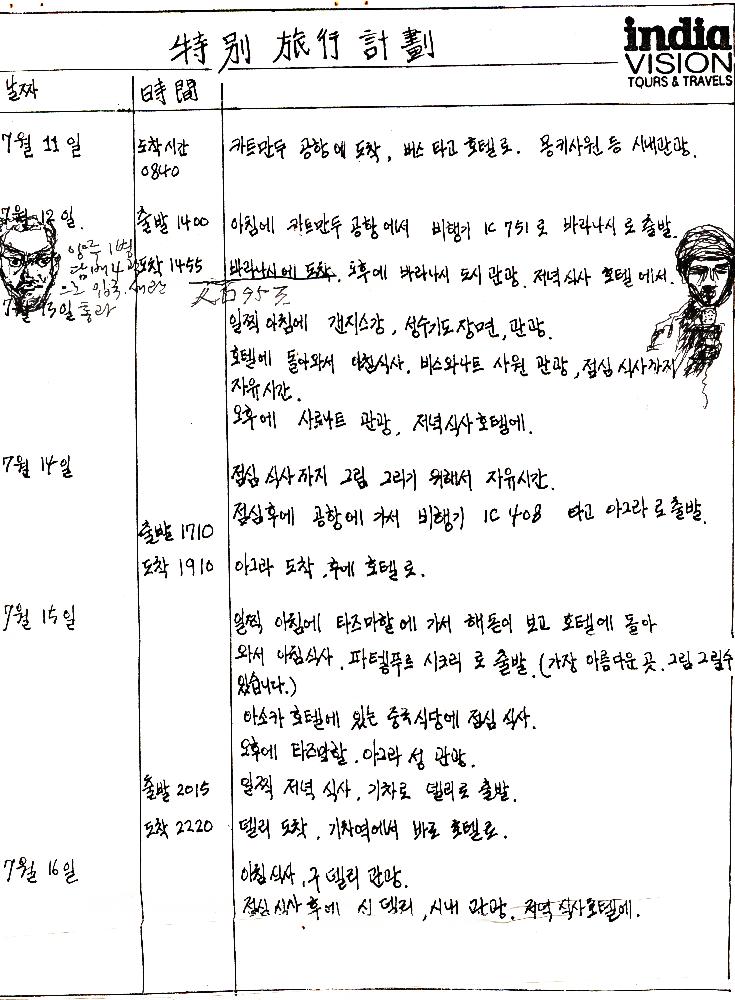 特別 旅行 計劃
india
VISION
TOURS & TRAVELS
날짜 時間
7월 11일 도착시간 카트만두 공항에 도착, 버스 타고 호텔로. 몽키사원 등 시내관광.
0840
7월 12일. 출발 1400 아침에 카트만두 공항에서 비행기 IC 751로 바라나시로 출발.
양주 1병
담배 4
도착 1455 바라나시에 도착. 오후에 바라나시 도시 관광. 저녁식사 호텔에서.
으로 입국
7월 13일 통과
일찍 아침에 갠지스강, 성수기도 장면, 관광.
호텔에 돌아와서 아침식사. 비스와나트 사원 관광, 점심 식사까지
자유시간.
오후에 사르나트 관광, 저녁식사 호텔에.
7월 14일 점심 식사까지 그림 그리기 위해서 자유시간.
점심후에 공항에 가서 비행기 IC 408 타고 아그라로 출발.
출발 1710
도착 1910 아그라 도착, 후에 호텔로.
7월 15일 일찍 아침에 타즈마할에 가서 해돋이 보고 호텔에 돌아
와서 아침식사. 파텔푸르 시크리로 출발. (가장 아름다운 곳. 그림 그릴수
있습니다.)
아소카 호텔에 있는 중국식당에 점심 식사.
오후에 타즈마할. 아그라 성 관광.
출발 2015 일찍 저녁 식사, 기차로 델리로 출발.
도착 2220 델리 도착, 기차역에서 바로 호텔로.
7월 16일 아침식사, 구 델리 관광.
점심식사 후에 신 델리, 시내 관광. 저녁 식사호텔에.